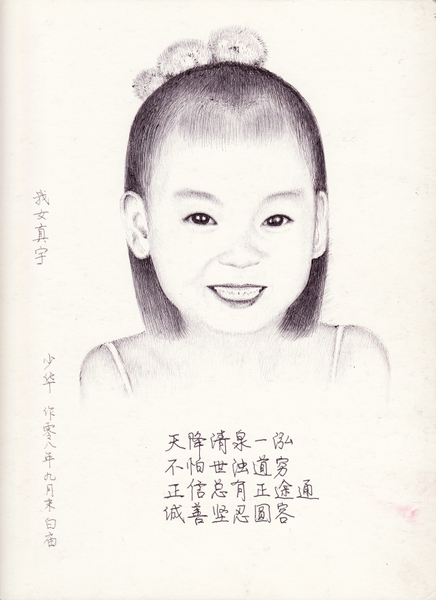 我女真宇
少华 作零八年九月末白庙
天降清泉一泓
不怕世浊道穷
正信总有正途通
诚善坚忍圆容